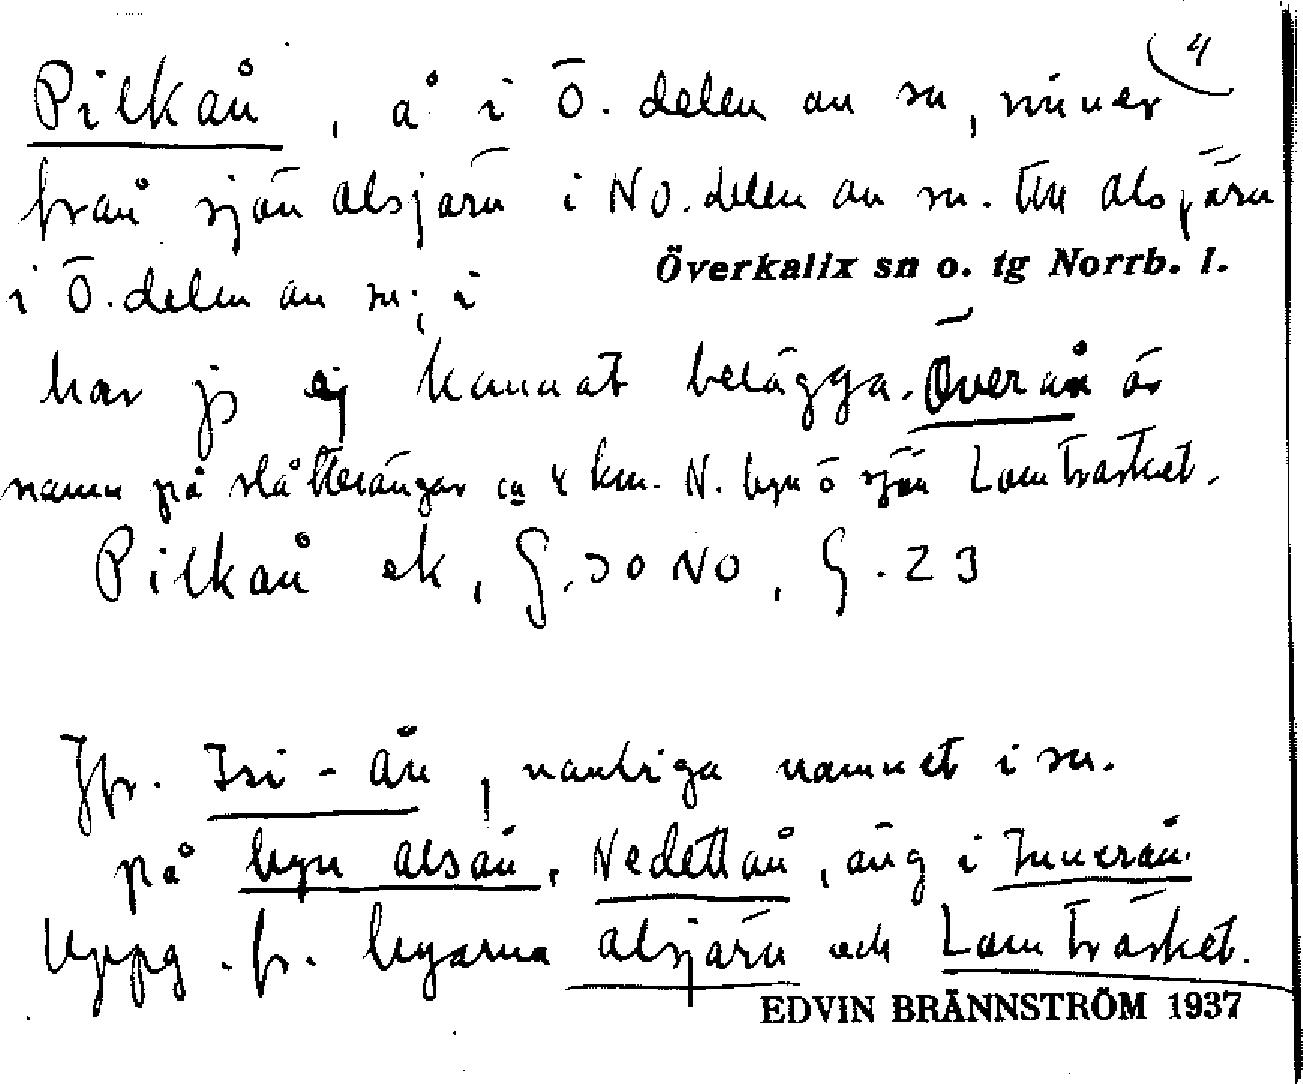 4
Pilkån, å i Ö. delen av sn, rinner
från sjön Alsjärv i NO. delen av sn. till Alsjärv
Överkalix sn o. tg Norrb. l.
i Ö. delen av sn; i
har jg ej kunnat belägga. Överån är
namn på slåtterängar ca 4 km. N. byn ö sjön Lomträsket.
Pilkån ek, G. 30 NO, G. 23
Jfr. Isi-ån, vanliga namnet i sn.
på byn Alsån. Nedettån, äng i Innerån.
Uppg. fr. byarna Alsjärv och Lomträsket.
EDVIN BRÄNNSTRÖM 1937